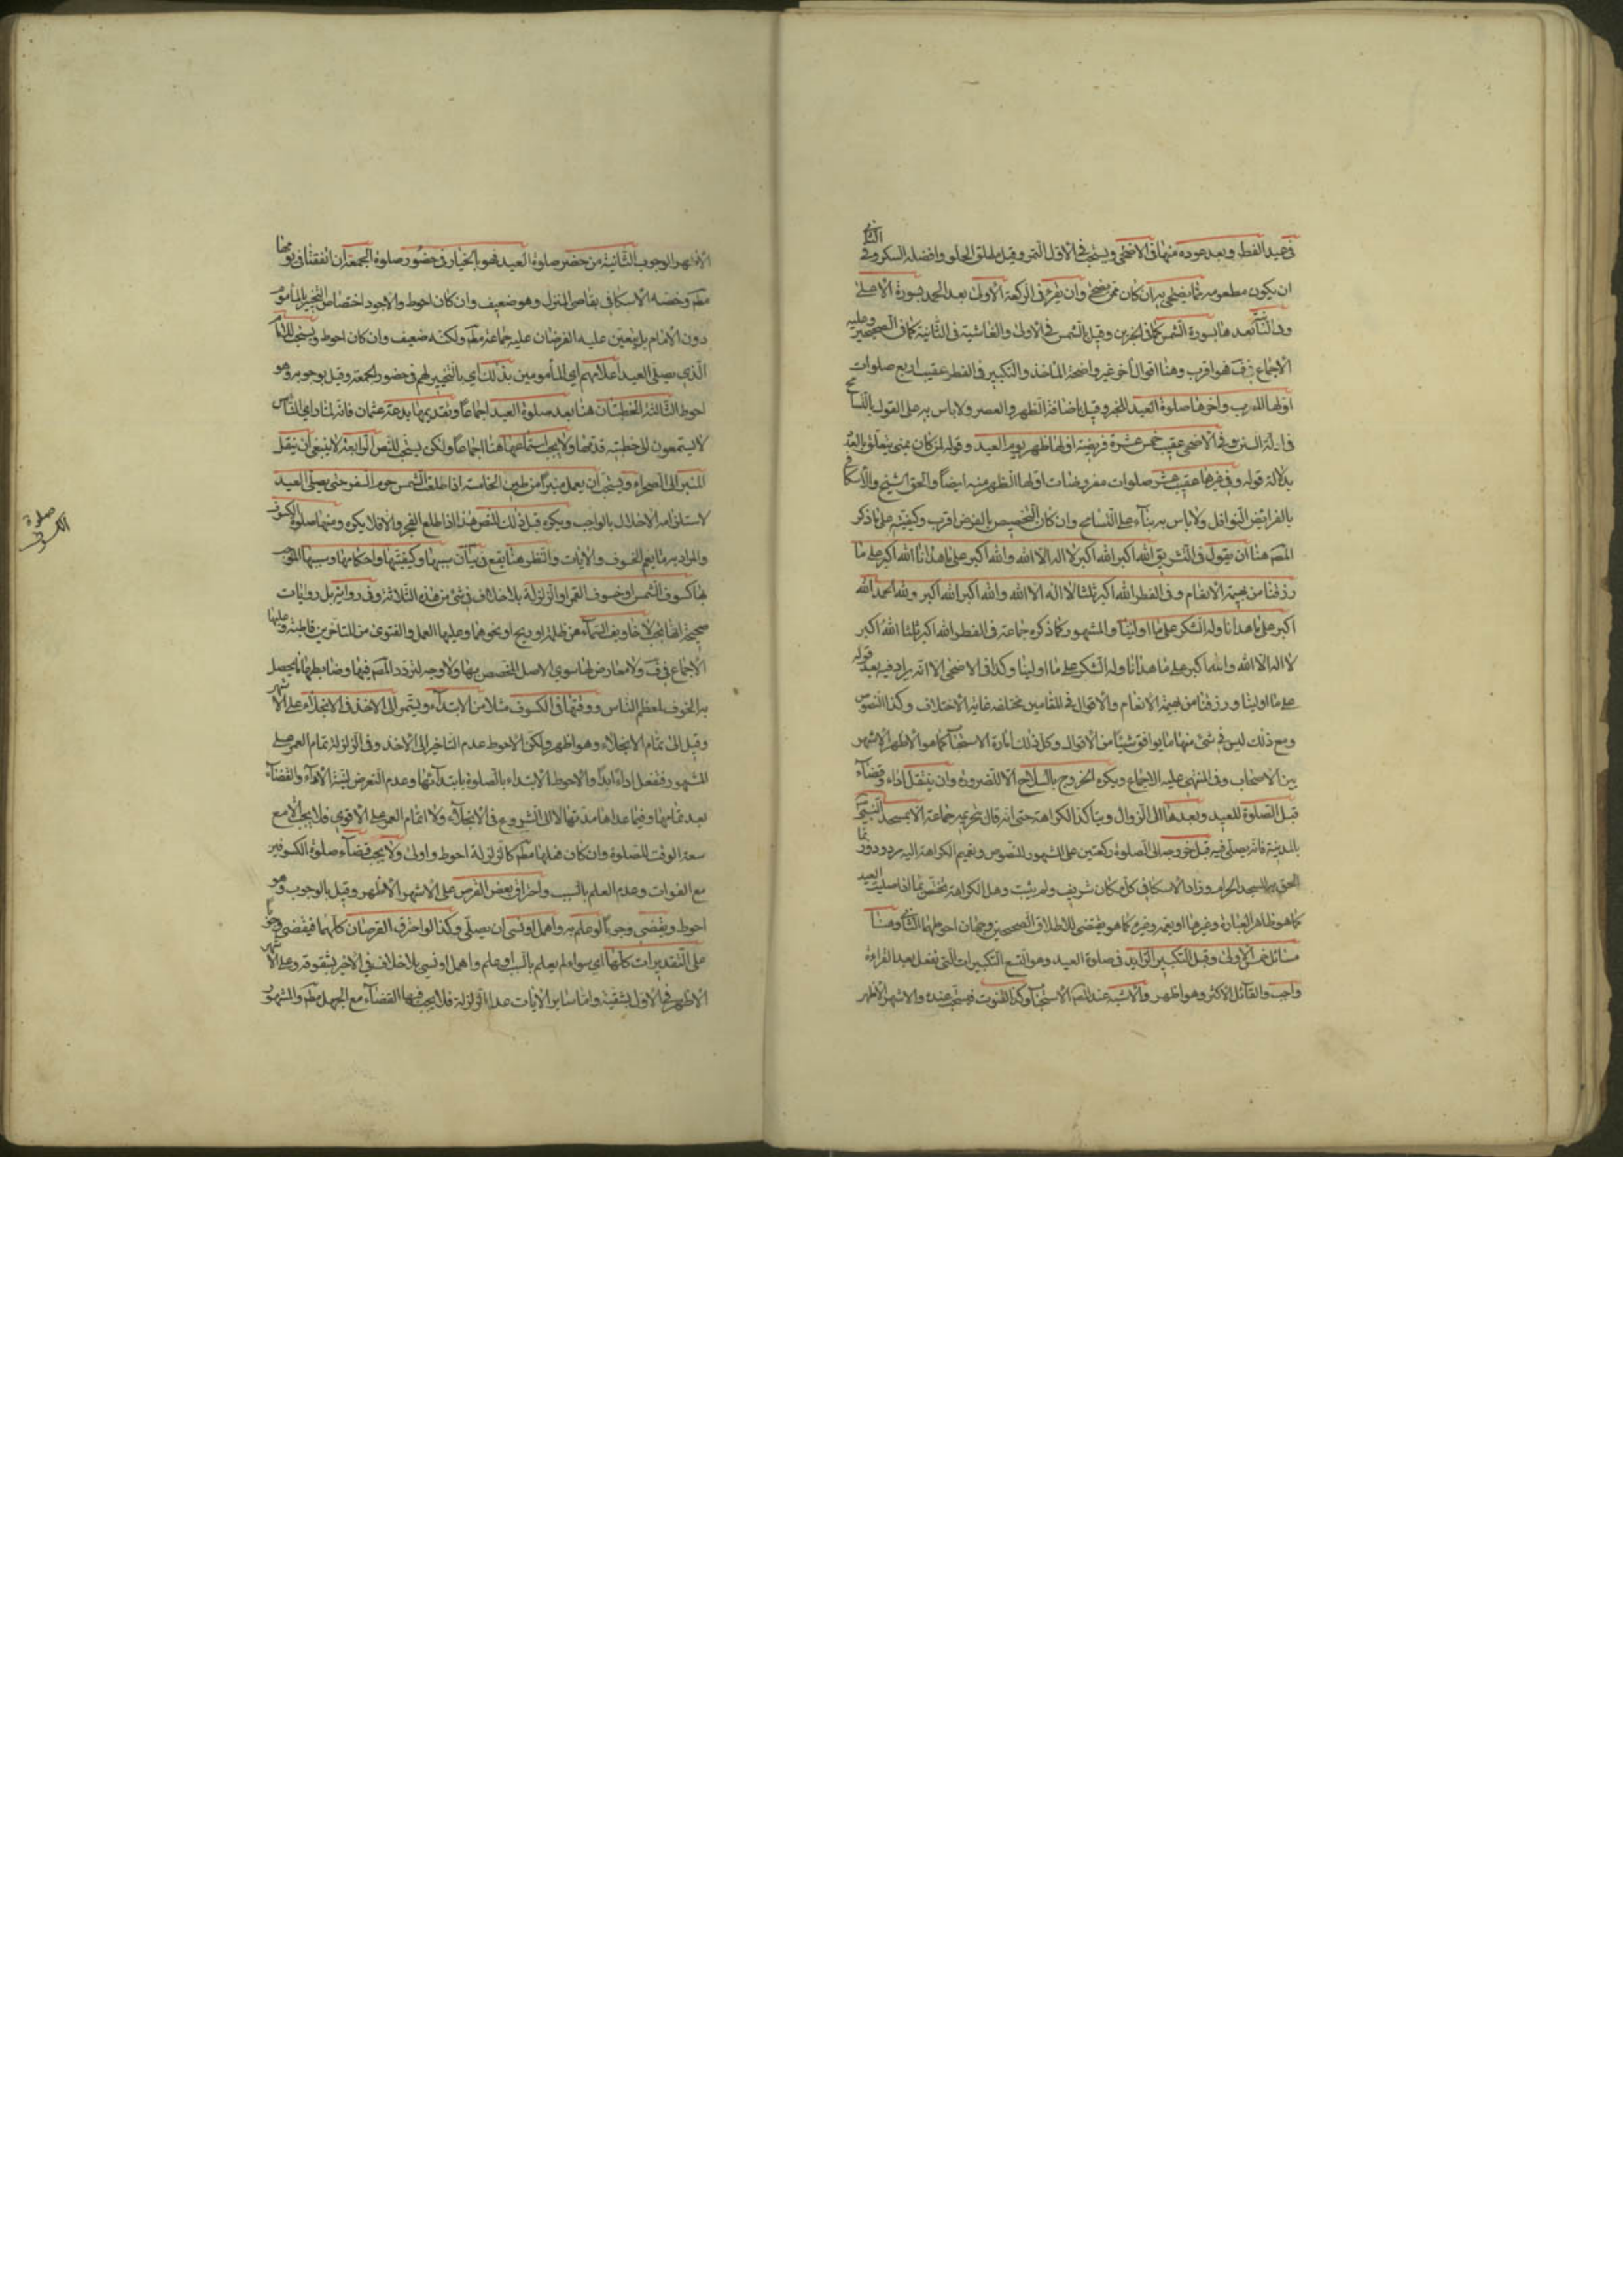 في عيد الفطر وبعد عوده منها في الاضحى ويستحب في الاول التمر وقيل مطلق الحلو وافضله السكر وفي الثاني
ان يكون مطعومه مما يضحي به ان كان ممن يضحي وان يقرء في الركعة الاولى بعد الحمد بسورة الاعلى
وفي الثانية بعدها بسورة الشمس كما في الخبرين وقيل الشمس في الاولى والغاشية في الثانية كما في الصحيحين وعليه
الاجماع في ف فهو اقرب وهنا اقوال أخر غير واضحة المأخذ والتكبير في الفطر عقيب اربع صلوات
اولها المغرب واخرها صلوة العيد للخبر وقيل باضافة الظهر والعصر ولا باس به على القول بالتسامح
في ادلة السنن وفي الاضحى عقيب خمس عشرة فريضة اولها ظهر يوم العيد وقوله لمن كان بمنى يتعلق بالعدد
بدلالة قوله وفي غيرها عقيب عشر صلوات مفروضات اولها الظهر منه ايضا والحق الشيخ والاسكافي
بالفرايض النوافل ولا باس به بناء على التسامح وان كان التخصيص بالفرض اقرب وكيفيته على ما ذكر
المص هنا ان يقول في التشريق الله اكبر الله اكبر لا اله الا الله والله اكبر على ما هدانا الله اكبر على ما
رزقنا من بهيمة الانعام وفي الفطر الله اكبر ثلثا لا اله الا الله والله اكبر الله اكبر ولله الحمد الله
اكبر على ما هدانا وله الشكر على ما اولينا والمشهور كما ذكره جماعة في الفطر الله اكبر ثلثا الله اكبر
لا اله الا الله والله اكبر على ما هدانا وله الشكر على ما اولينا وكذا في الاضحى الا انه يزاد فيه بعد قوله
على ما اولينا ورزقنا من بهيمة الانعام والاقوال في المقامين مختلفة غاية الاختلاف وكذا النصوص
ومع ذلك ليس في شئ منها ما يوافق شيئا من الاقوال وكل ذلك امارة الاستحباب كما هو الاظهر الاشهر
بين الاصحاب وفي المنتهى عليه الاجماع ويكره الخروج بالسلاح الا للضرورة وان يتنفل اداء وقضاء
قبل الصلوة للعيد وبعدها الى الزوال ويتأكد الكراهة حتى انه قال بتحريمه جماعة الا بمسجد النبي ص
بالمدينة فانه يصلي فيه قبل خروجه الى الصلوة ركعتين على المشهور للنصوص وتعميم الكراهة اليه مردود وربما
الحق به المسجد الحرام وزاد الاسكافي كل مكان شريف ولم يثبت وهل الكراهة تختص بما اذا صليت العيد
كما هو ظاهر العبارة وغيرها او يعمه وغيره كما هو مقتضى اطلاق الصحيحين وجهان احوطهما الثاني وهنا
مسائل خمس الاولى وقيل التكبير الزايد في صلوة العيد وهو التسع التكبيرات التي تفعل بعد القراءة
واجب والقائل الاكثر وهو اظهر والاشبه عند المص الاستحباب وكذا القنوت فيستحب عنده والاشهر الاظهر
الاظهر الوجوب الثانية من حضر صلوة العيد فهو بالخيار في حضور صلوة الجمعة ان اتفقتا في يومها
مطم وخصه الاسكافي بقاصي المنزل وهو ضعيف وان كان احوط والاجود اختصاص التخيير بالمأموم
دون الامام بل يتعين عليه الفرضان عليه جماعة مطم ولكنه ضعيف وان كان احوط ويستحب للامام
الذي يصلي العيد اعلامهم اي المأمومين بذلك اي بالتخيير لهم في حضور الجمعة وقيل بوجوبه وهو
احوط الثالثة الخطبتان هنا بعد صلوة العيد اجماعا وتقديمها بدعة عثمان فانه لما راى الناس
لا يستمعون الى خطبته قدمها ولا يجب استماعهما هنا اجماعا ولكن يستحب للنص الرابعة لا ينبغي ان ينقل
المنبر الى الصحراء ويستحب ان يعمل منبرا من طين الخامسة اذا طلعت الشمس حرم السفر حتى يصلي العيد
لاستلزامه الاخلال بالواجب ويكره قبل ذلك للنص هذا اذا طلع الفجر والا فلا يكره ومنها صلوة الكسوف
والمراد به ما يعم الخسوف والايات والنظر هنا يقع في بيان سببها وكيفيتها واحكامها وسببها الموجب
لها كسوف الشمس او خسوف القمر او الزلزلة بلا خلاف في شئ من هذه الثلاثة وفي رواية بل روايات
صحيحة انها تجب لاخاويف السماء من ظلمة او ريح او نحوهما وعليها العمل والفتوى من المتاخرين قاطبة وعليها
الاجماع في ف ولا معارض لها سوى الاصل المخصص بها ولا وجه لتردد المص فيها وضابطها ما يحصل
به الخوف لمعظم الناس ووقتها في الكسوف مثلا من الابتداء ويستمر الى الاخذ في الانجلاء على الاشهر
وقيل الى تمام الانجلاء وهو اظهر ولكن الاحوط عدم التاخير الى الاخذ وفي الزلزلة تمام العمر على
المشهور فتفعل اداء ابدا والاحوط الابتداء بالصلوة بابتدائها وعدم التعرض لنية الاداء والقضاء
بعد تمامها وفيما عداها مدتها لا الى الشروع في الانجلاء ولا اتمام العمر على الاقوى فلا يجب الا مع
سعة الوقت للصلوة وان كان فعلها مطم كالزلزلة احوط واولى ولا يجب قضاء صلوة الكسوفين
مع الفوات وعدم العلم بالسبب واحتراق بعض القرص على الاشهر الاظهر وقيل بالوجوب وهو
احوط ويقضي وجوبا لو علم به واهمل او نسي ان يصلي وكذا لو احترق القرصان كلهما فيقضي وجوبا
على التقديرات كلها اي سواء لم يعلم بالسبب او علم واهمل او نسي بلا خلاف في الاخير بشقوقه وعلى الاشهر
الاظهر في الاول بشقيه واما ساير الايات عدا الزلزلة فلا يجب فيها القضاء مع الجهل مطم والمشهور
صلوة
الكسوف